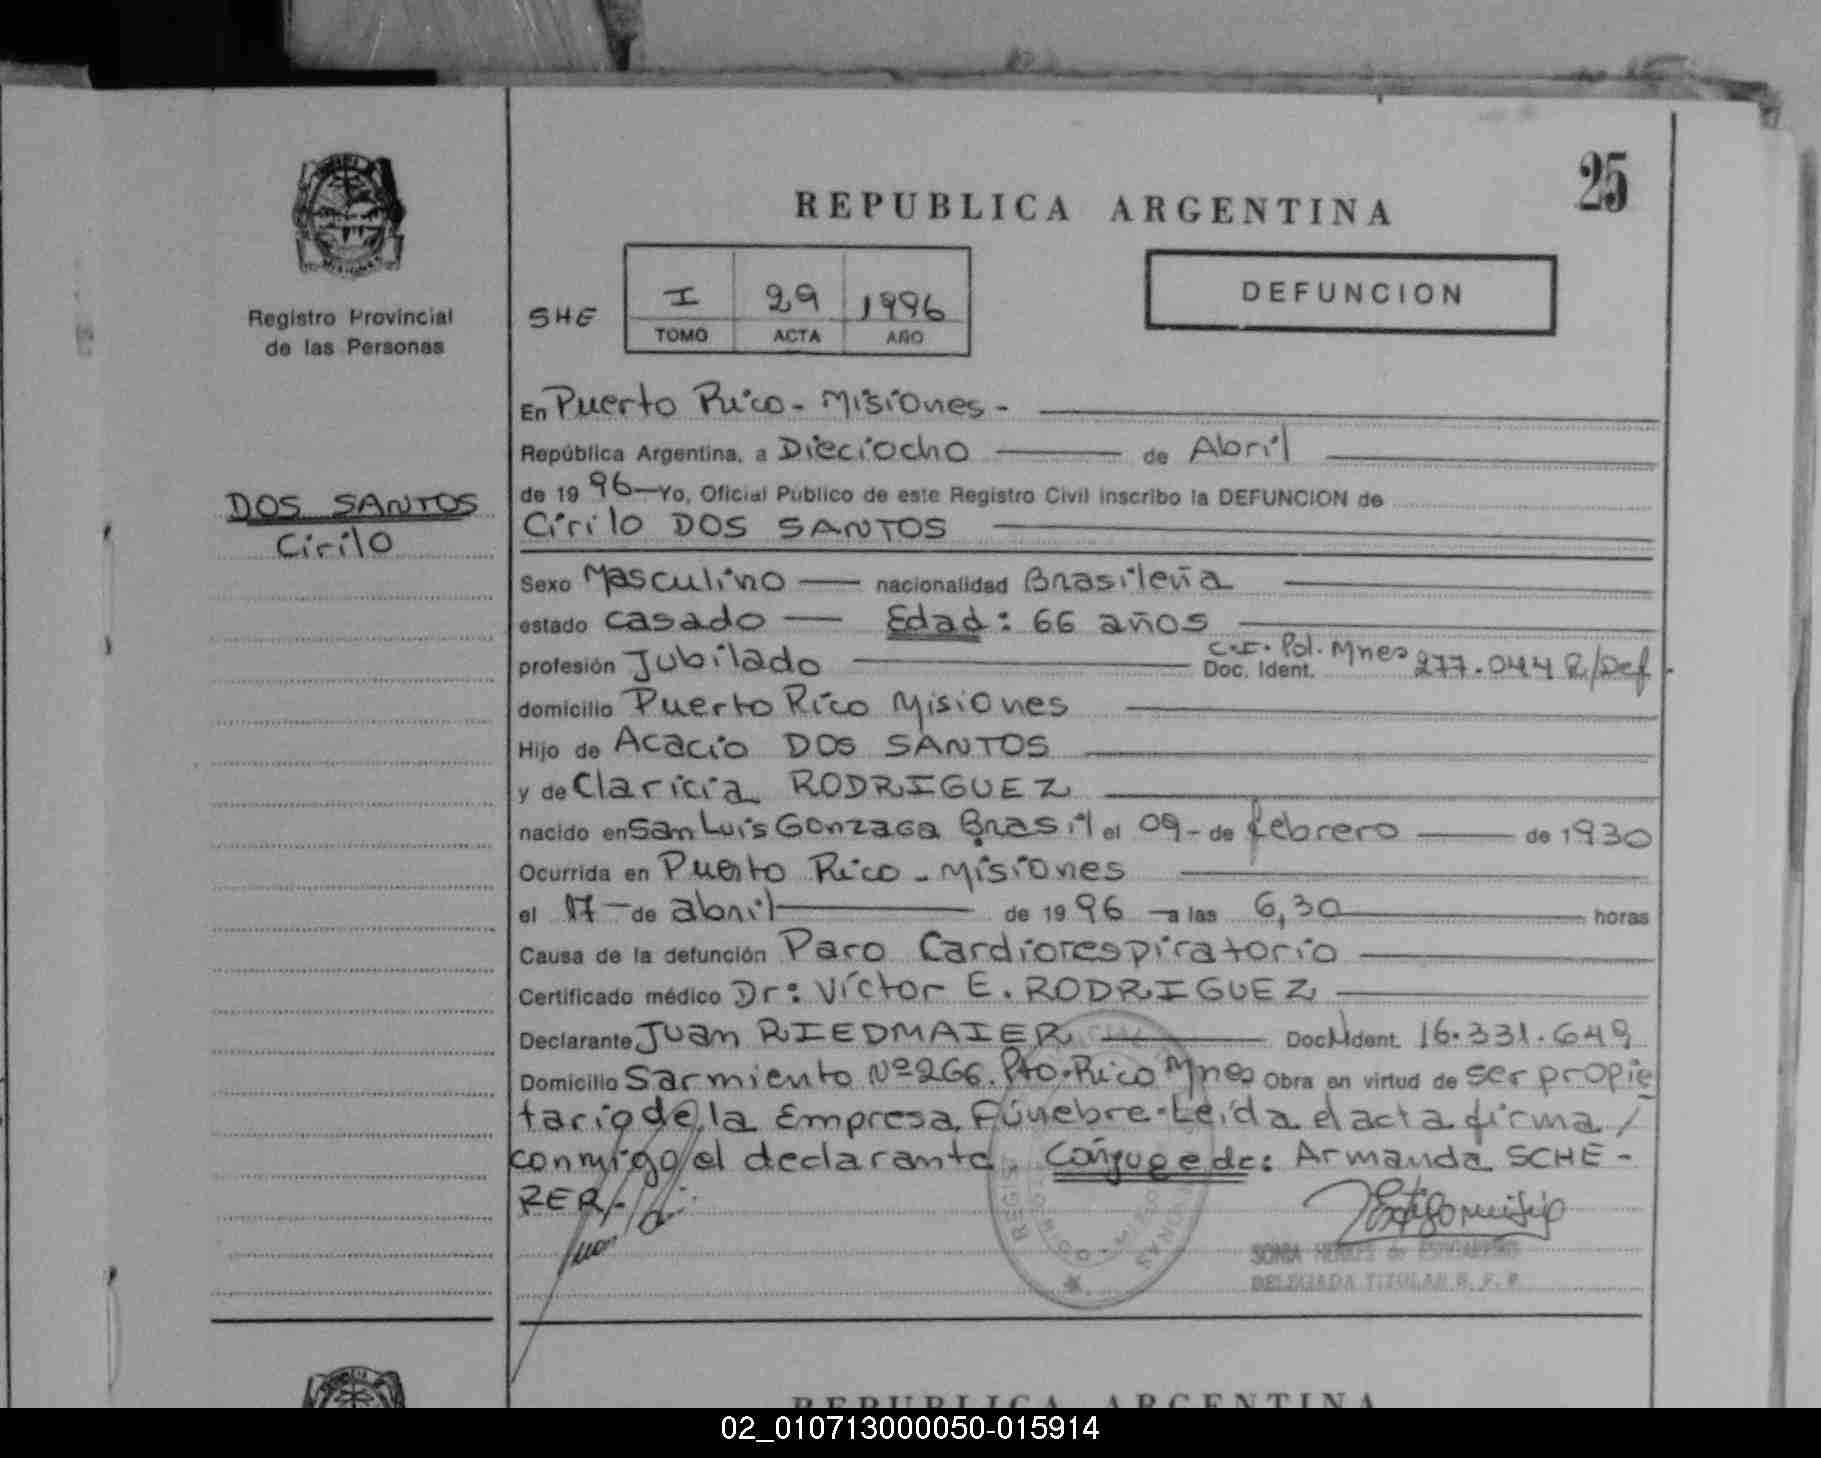 25
REPUBLICA ARGENTINA
DEFUNCION
Registro Provincial
de las Personas
SHE
I 29 1996
TOMO ACTA AÑO
DOS SANTOS
Cirilo
En Puerto Rico - Misiones -
República Argentina, a Dieciocho de Abril
de 1996 - Yo, Oficial Público de este Registro Civil inscribo la DEFUNCION de
Cirilo DOS SANTOS
Sexo Masculino nacionalidad Brasileña
estado casado Edad: 66 años
profesión Jubilado Doc. Ident. C.I. Pol. Mnes 277.044 R/Def.
domicilio Puerto Rico Misiones
Hijo de Acacio DOS SANTOS
y de Claricia RODRIGUEZ
nacido en San Luis Gonzaga Brasil el 09 - de febrero de 1930
Ocurrida en Puerto Rico - Misiones
el 17 - de abril de 1996 - a las 6,30 horas
Causa de la defunción Paro Cardiorespiratorio
Certificado médico Dr: Víctor E. RODRIGUEZ
Declarante Juan RIEDMAIER Doc. Ident. 16.331.649
Domicilio Sarmiento Nº 266. Pto. Rico Mnes Obra en virtud de ser propie
tario de la Empresa Fúnebre. Leída el acta firma/
conmigo el declarante. Cónyuge de: Armanda SCHE -
RER/-
SONIA
DELEGADA TITULAR R. P. P.
REPUBLICA ARGENTINA
02_010713000050-015914